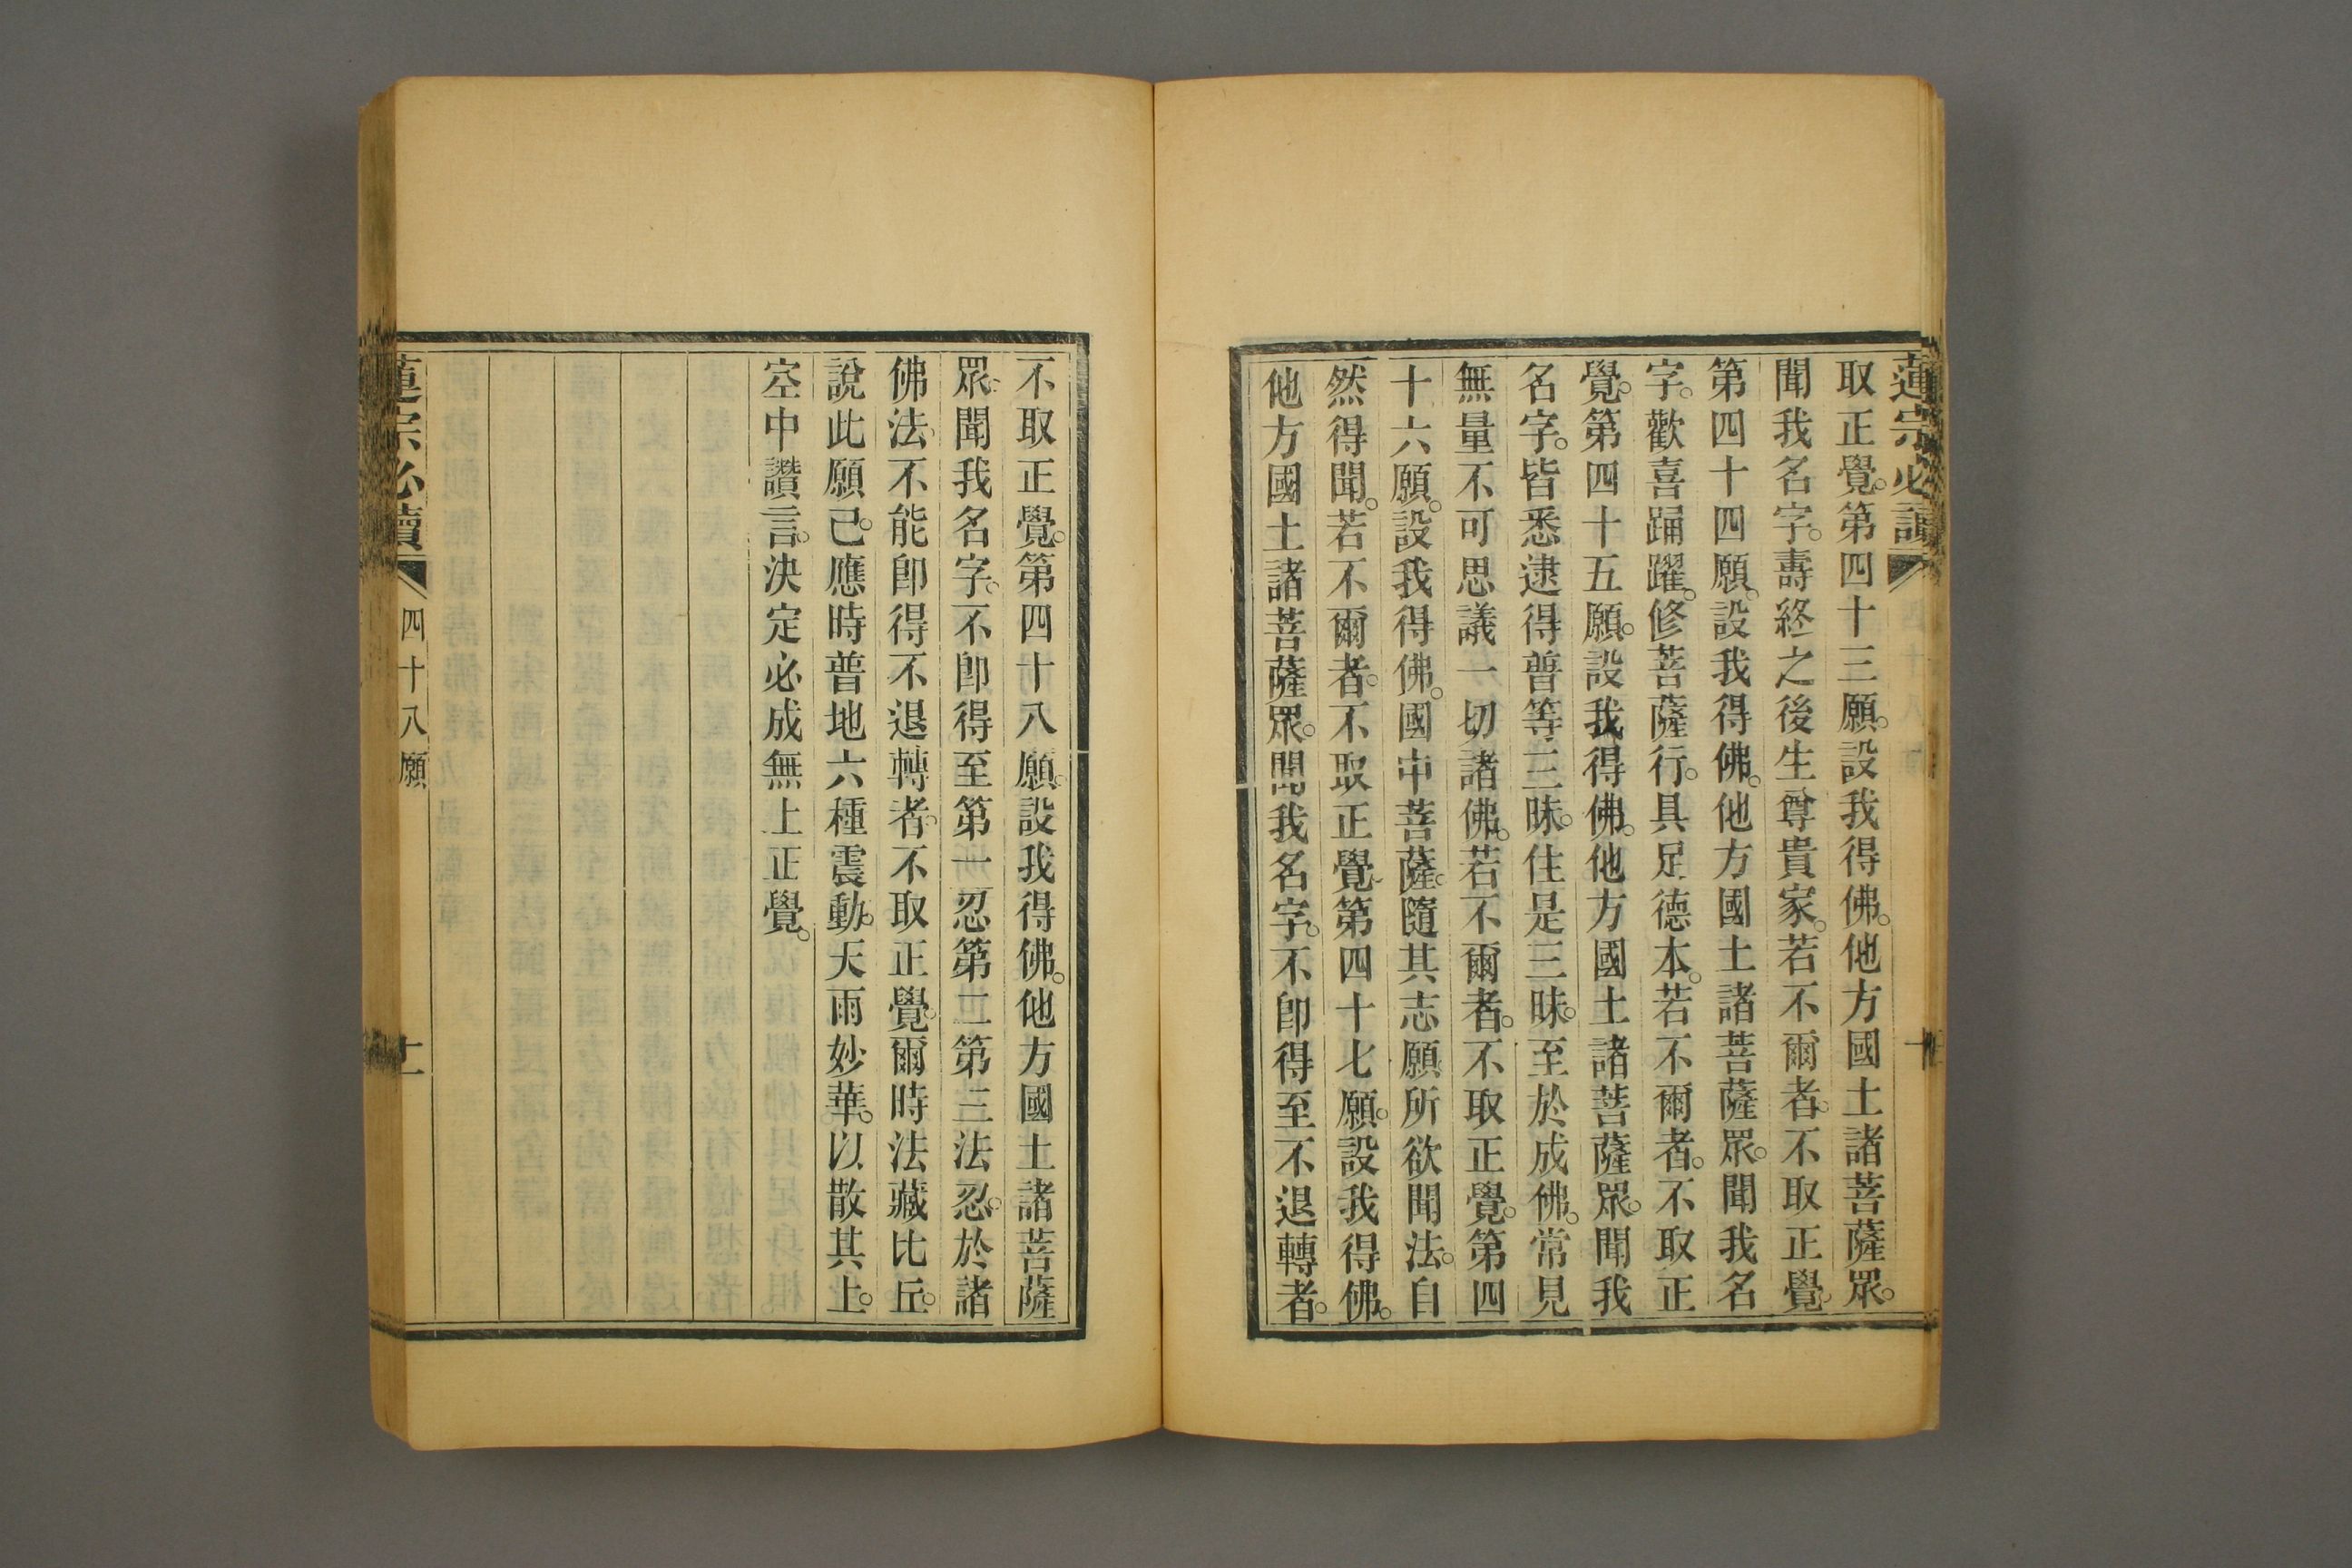 蓮宗必讀
取正覺。第四十三願。設我得佛。他方國土諸菩薩眾。
聞我名字。壽終之後生尊貴家。若不爾者。不取正覺。
第四十四願。設我得佛。他方國土諸菩薩眾。聞我名
字。歡喜踊躍。修菩薩行。具足德本。若不爾者。不取正
覺。第四十五願。設我得佛。他方國土諸菩薩眾。聞我
名字。皆悉逮得普等三昧。住是三昧。至於成佛。常見
無量不可思議一切諸佛。若不爾者。不取正覺。第四
十六願。設我得佛。國中菩薩。隨其志願所欲聞法。自
然得聞。若不爾者。不取正覺。第四十七願。設我得佛。
他方國土諸菩薩眾。聞我名字。不卽得至不退轉者。
不取正覺。第四十八願。設我得佛。他方國土諸菩薩
眾。聞我名字。不卽得至第一忍第二第三法忍。於諸
佛法。不能卽得不退轉者。不取正覺。爾時法藏比丘。
說此願已。應時普地六種震動。天雨妙華。以散其上。
空中讚言。決定必成無上正覺。
蓮宗必讀 四十八願 十一